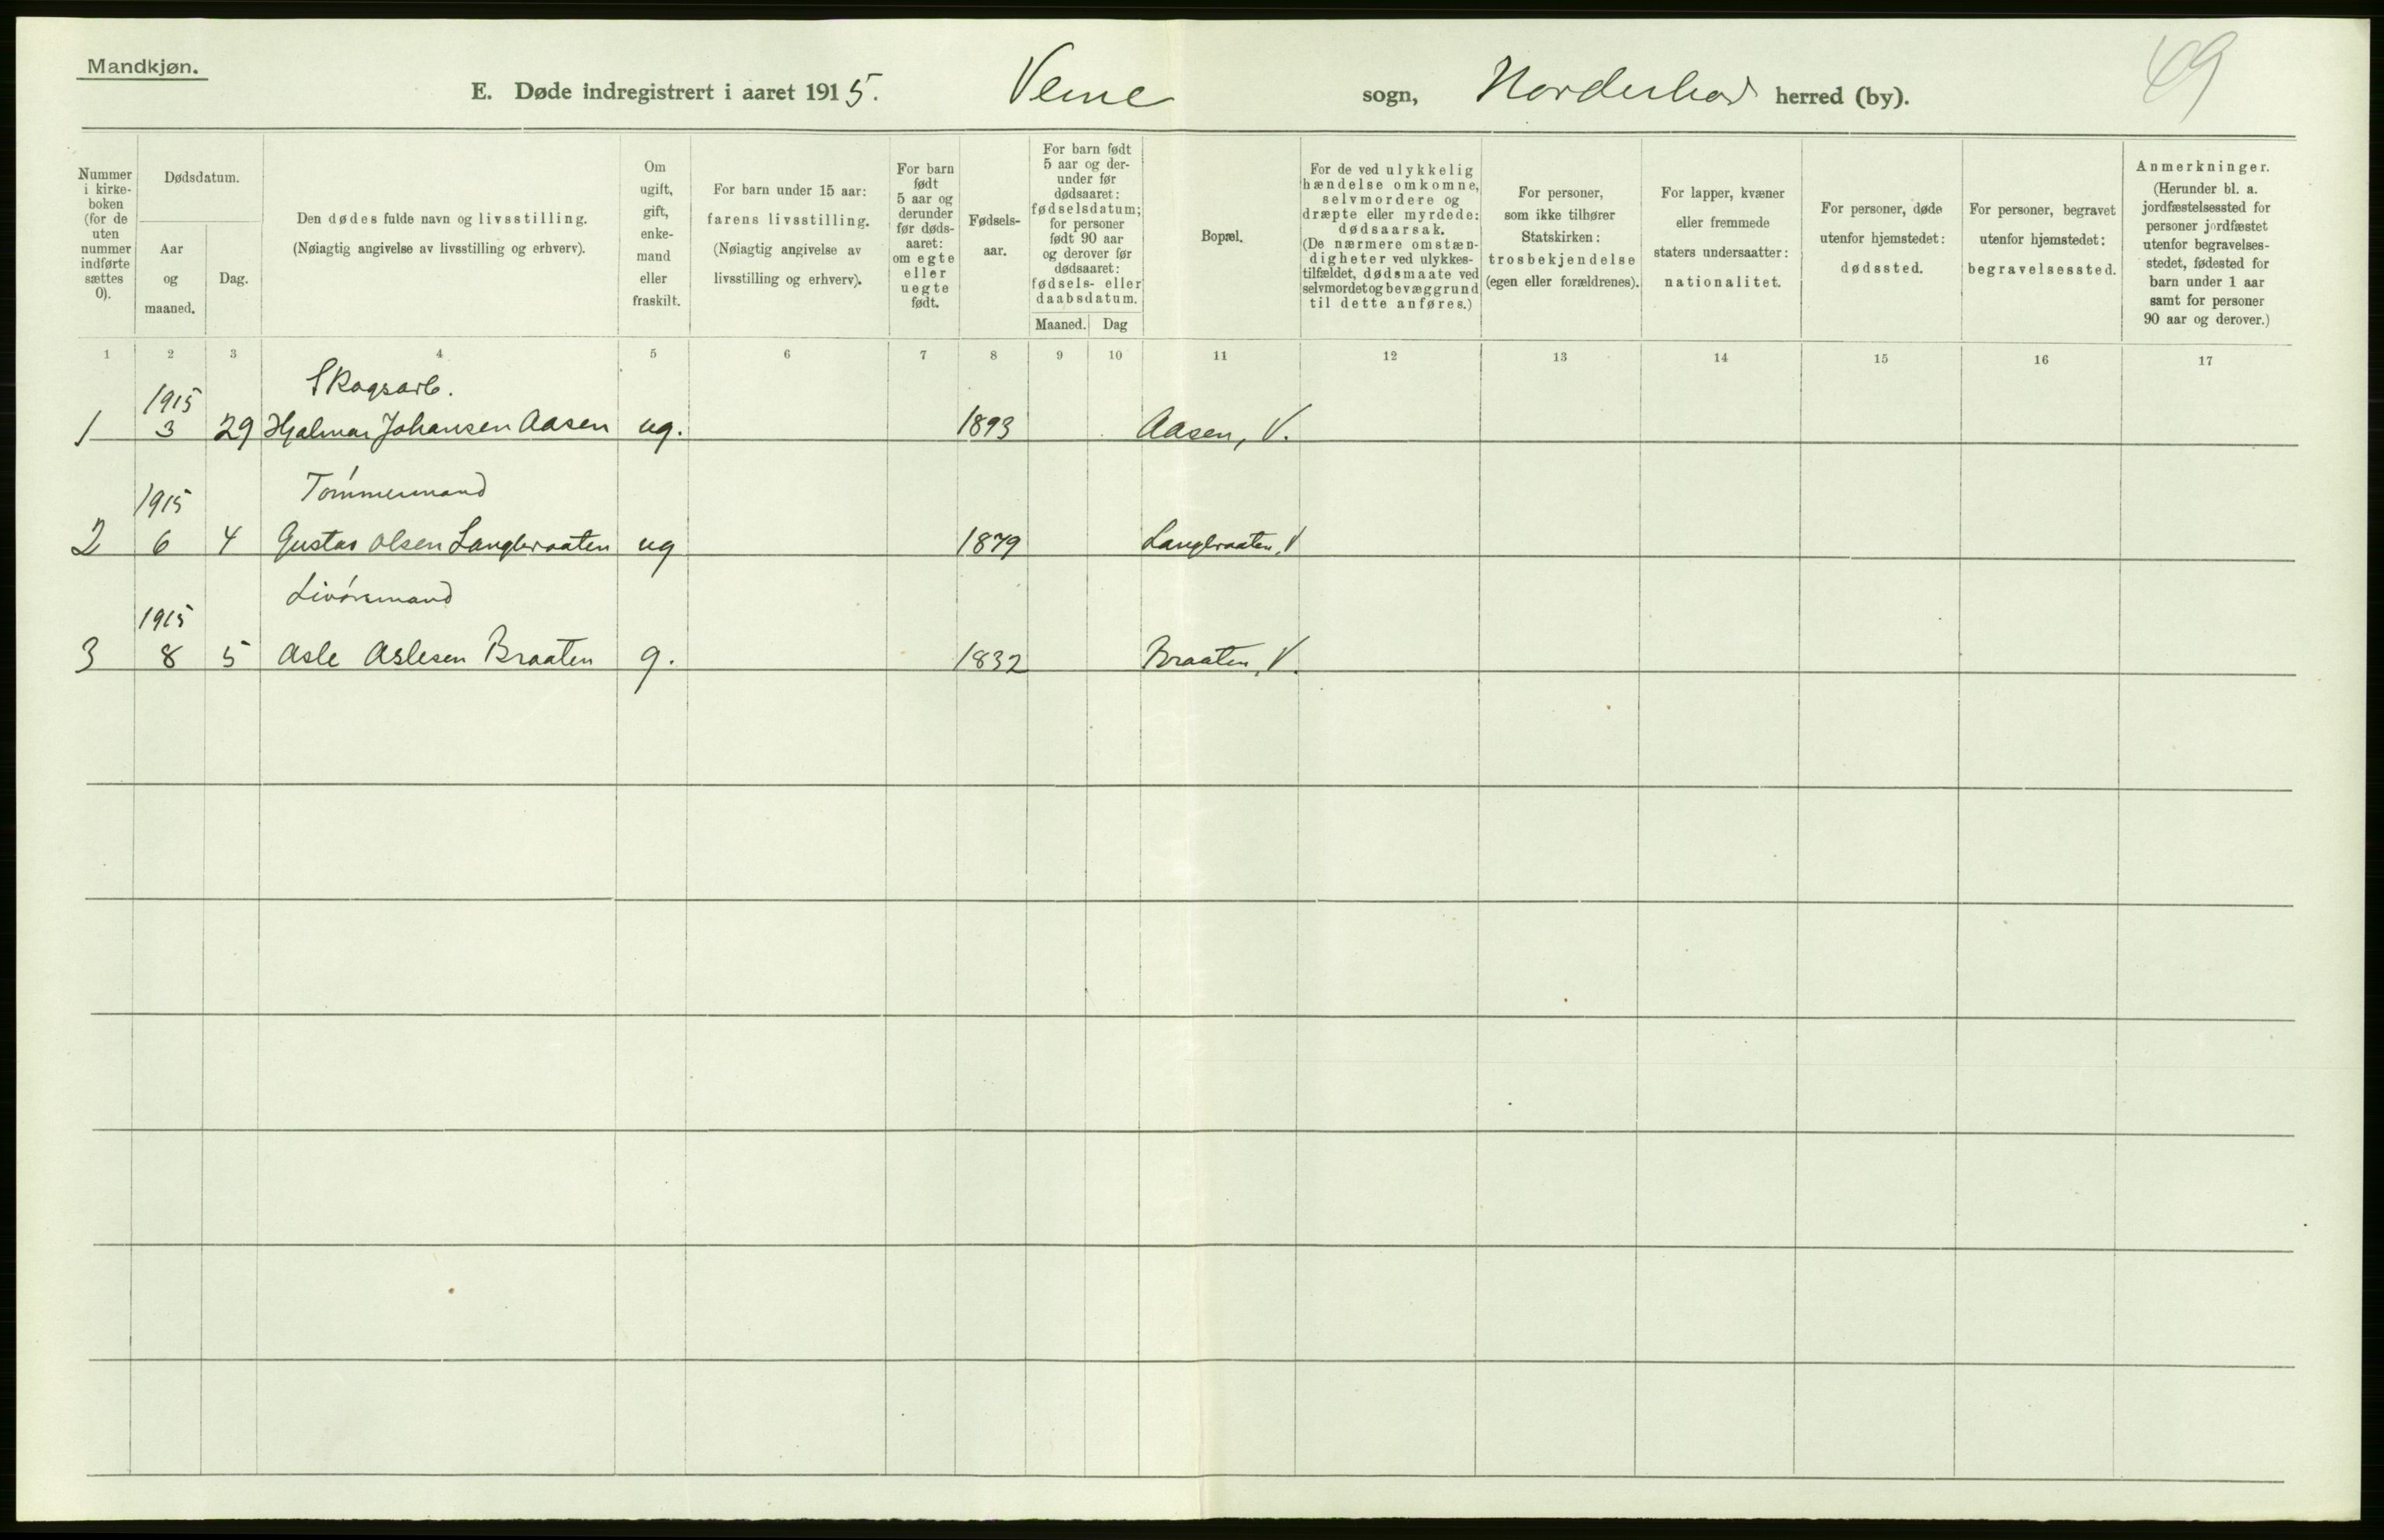 Mandkjøn.
49
E. Døde indregistrert i aaret 1915. Veme sogn, Norderhov herred (by).
Nummer
i kirke-
boken
(for de
uten
nummer
indførte
sættes
0).
Dødsdatum.
Aar
og
maaned.
Dag.
Den dødes fulde navn og livsstilling.
(Nøiagtig angivelse av livsstilling og erhverv).
Om
ugift,
gift,
enke-
mand
eller
fraskilt.
For barn under 15 aar:
farens livsstilling.
(Nøiagtig angivelse av
livsstilling og erhverv).
For barn
født
5 aar og
derunder
før døds-
aaret:
om egte
eller
uegte
født.
Fødsels-
aar.
For barn født
5 aar og der-
under før
dødsaaret:
fødselsdatum;
for personer
født 90 aar
og derover før
dødsaaret:
fødsels- eller
daabsdatum.
Maaned. Dag
Bopæl.
For de ved ulykkelig
hændelse omkomne,
selvmordere og
dræpte eller myrdede:
dødsaarsak.
(De nærmere omstæn-
digheter ved ulykkes-
tilfældet, dødsmaate ved
selvmordet og bevæggrund
til dette anføres.)
For personer,
som ikke tilhører
Statskirken:
trosbekjendelse
(egen eller forældrenes).
For lapper, kvæner
eller fremmede
staters undersaatter:
nationalitet.
For personer, døde
utenfor hjemstedet:
dødssted.
For personer, begravet
utenfor hjemstedet:
begravelsessted.
Anmerkninger.
(Herunder bl. a.
jordfæstelsessted for
personer jordfæstet
utenfor begravelses-
stedet, fødested for
barn under 1 aar
samt for personer
90 aar og derover.)
1 2 3 4 5 6 7 8 9 10 11 12 13 14 15 16 17
1915 Skogsarb.
1 3 29 Hjalmar Johansen Aasen ug. 1893 Aasen, V.
1915 Tømmermand
2 6 4 Gustav Olsen Langbraaten ug 1879 Langbraaten, V
1915 Livøremand
3 8 5 Asle Aslesen Braaten g. 1832 Braaten, V.